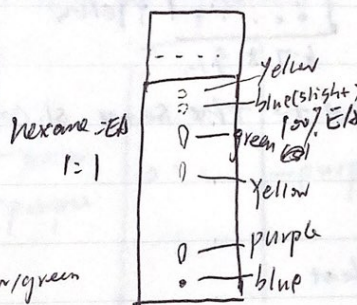 yellow
blue (slight)
hexane = EA
green 100% EA
1 = 1
yellow
purple
/green
blue